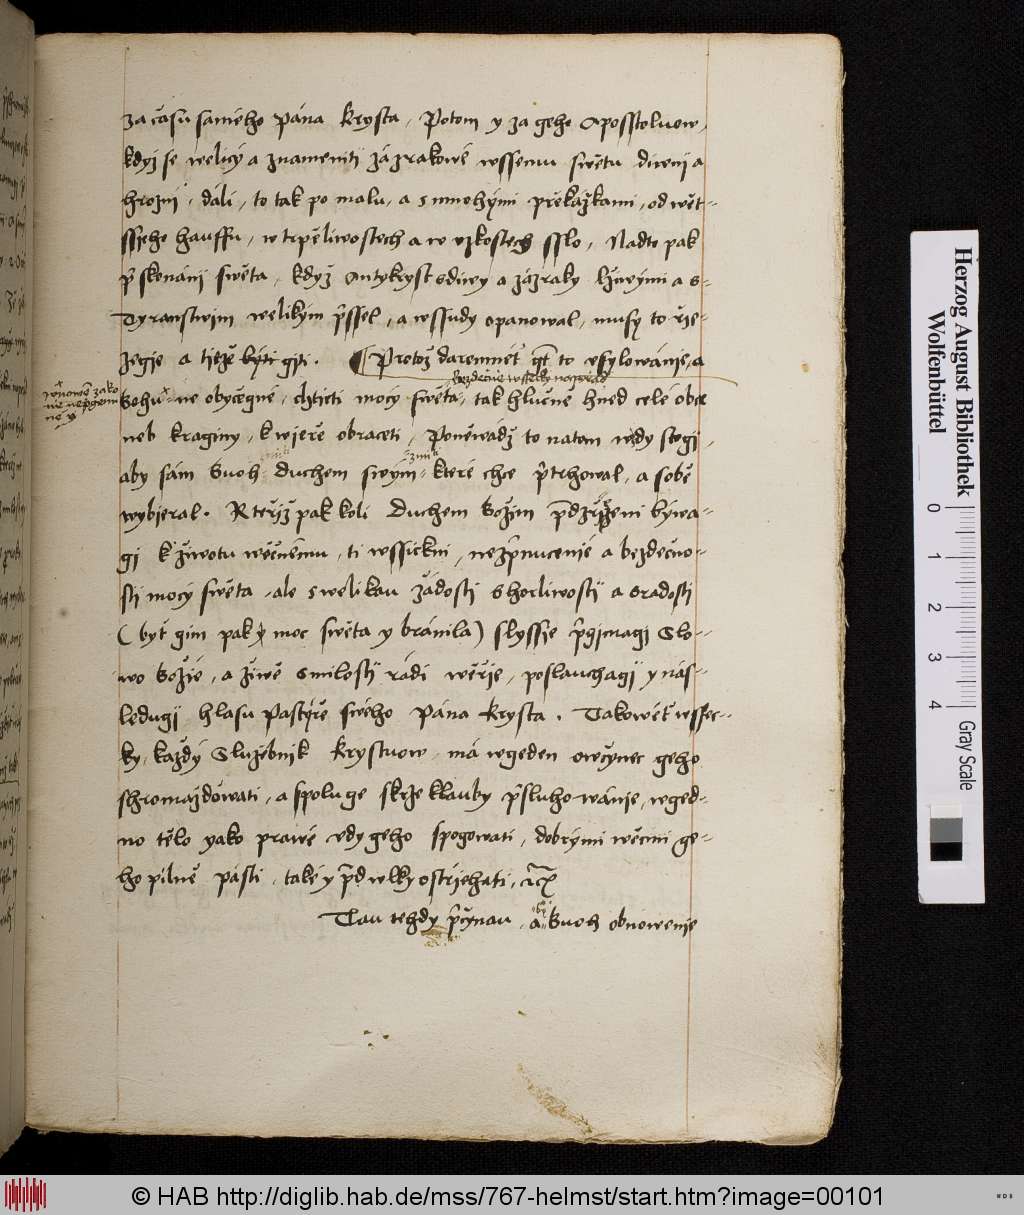 za časů samého Pána Krysta, Potom y za geho Aposstoluow,
kdyz se welicý a znameniti zázrakowé wssemu swětu diwnj a
hrozni dáli, to tak po malu, a s mnohými překážkami, od wět=
ssjeho hauffu, w trpěliwostech a w uzkostech sslo, Nadto pak
při skonánj swěta, když Antykryst s diwy a zázraky lžiwými a s=
Tyranstwim welikým přissel, a wssudy opanowal, musy to
a tjže býti gjti. Protož daremnét gt to vsylowánie, a
bezděčně wssecky naporad
wnowě zako
ně
Bohu ne obyčegné, chtieti mocý swěta, tak hlučně hned celé obce
neb kraginy, k wjeře obraceti, Poněwadž to natom wždy stogj,
aby sám Buoh duchem swým které chce přitrhowal, a sobě
wybieral. Kteřiž pak koli Duchem Božim předzřizeni býwa=
gj k žiwotu wěčnému, ti wssickni, ne z přinucenie a bezděčno=
sti mocý swěta, ale s welikau žádostj s horliwostij a s radosti
(byt gim pak moc swěta y bránila) slyssie přigimagj Slo=
wo Božie, a žiwě s milostij rádi wěřie, poslauchagij y nás=
ledugij hlasu Pastýře swého Pána Krysta. Takowét wssec=
ky, každý Služebnik Krystuow má w geden owčynec geho
schromažďowati, a spolu ge skrze klauby přisluhowánie, w ged=
no tělo yako prawé vdy geho spogowati, dobrými wěcmi ge=
ho pilně pásti, také y před wlky ostřiehati, etc
Tau tehdy přičynau, aby Buoh obnowenie
Herzog August Bibliothek
Wolfenbüttel
0 1 2 3 4
Gray Scale
© HAB http://diglib.hab.de/mss/767-helmst/start.htm?image=00101
WDB